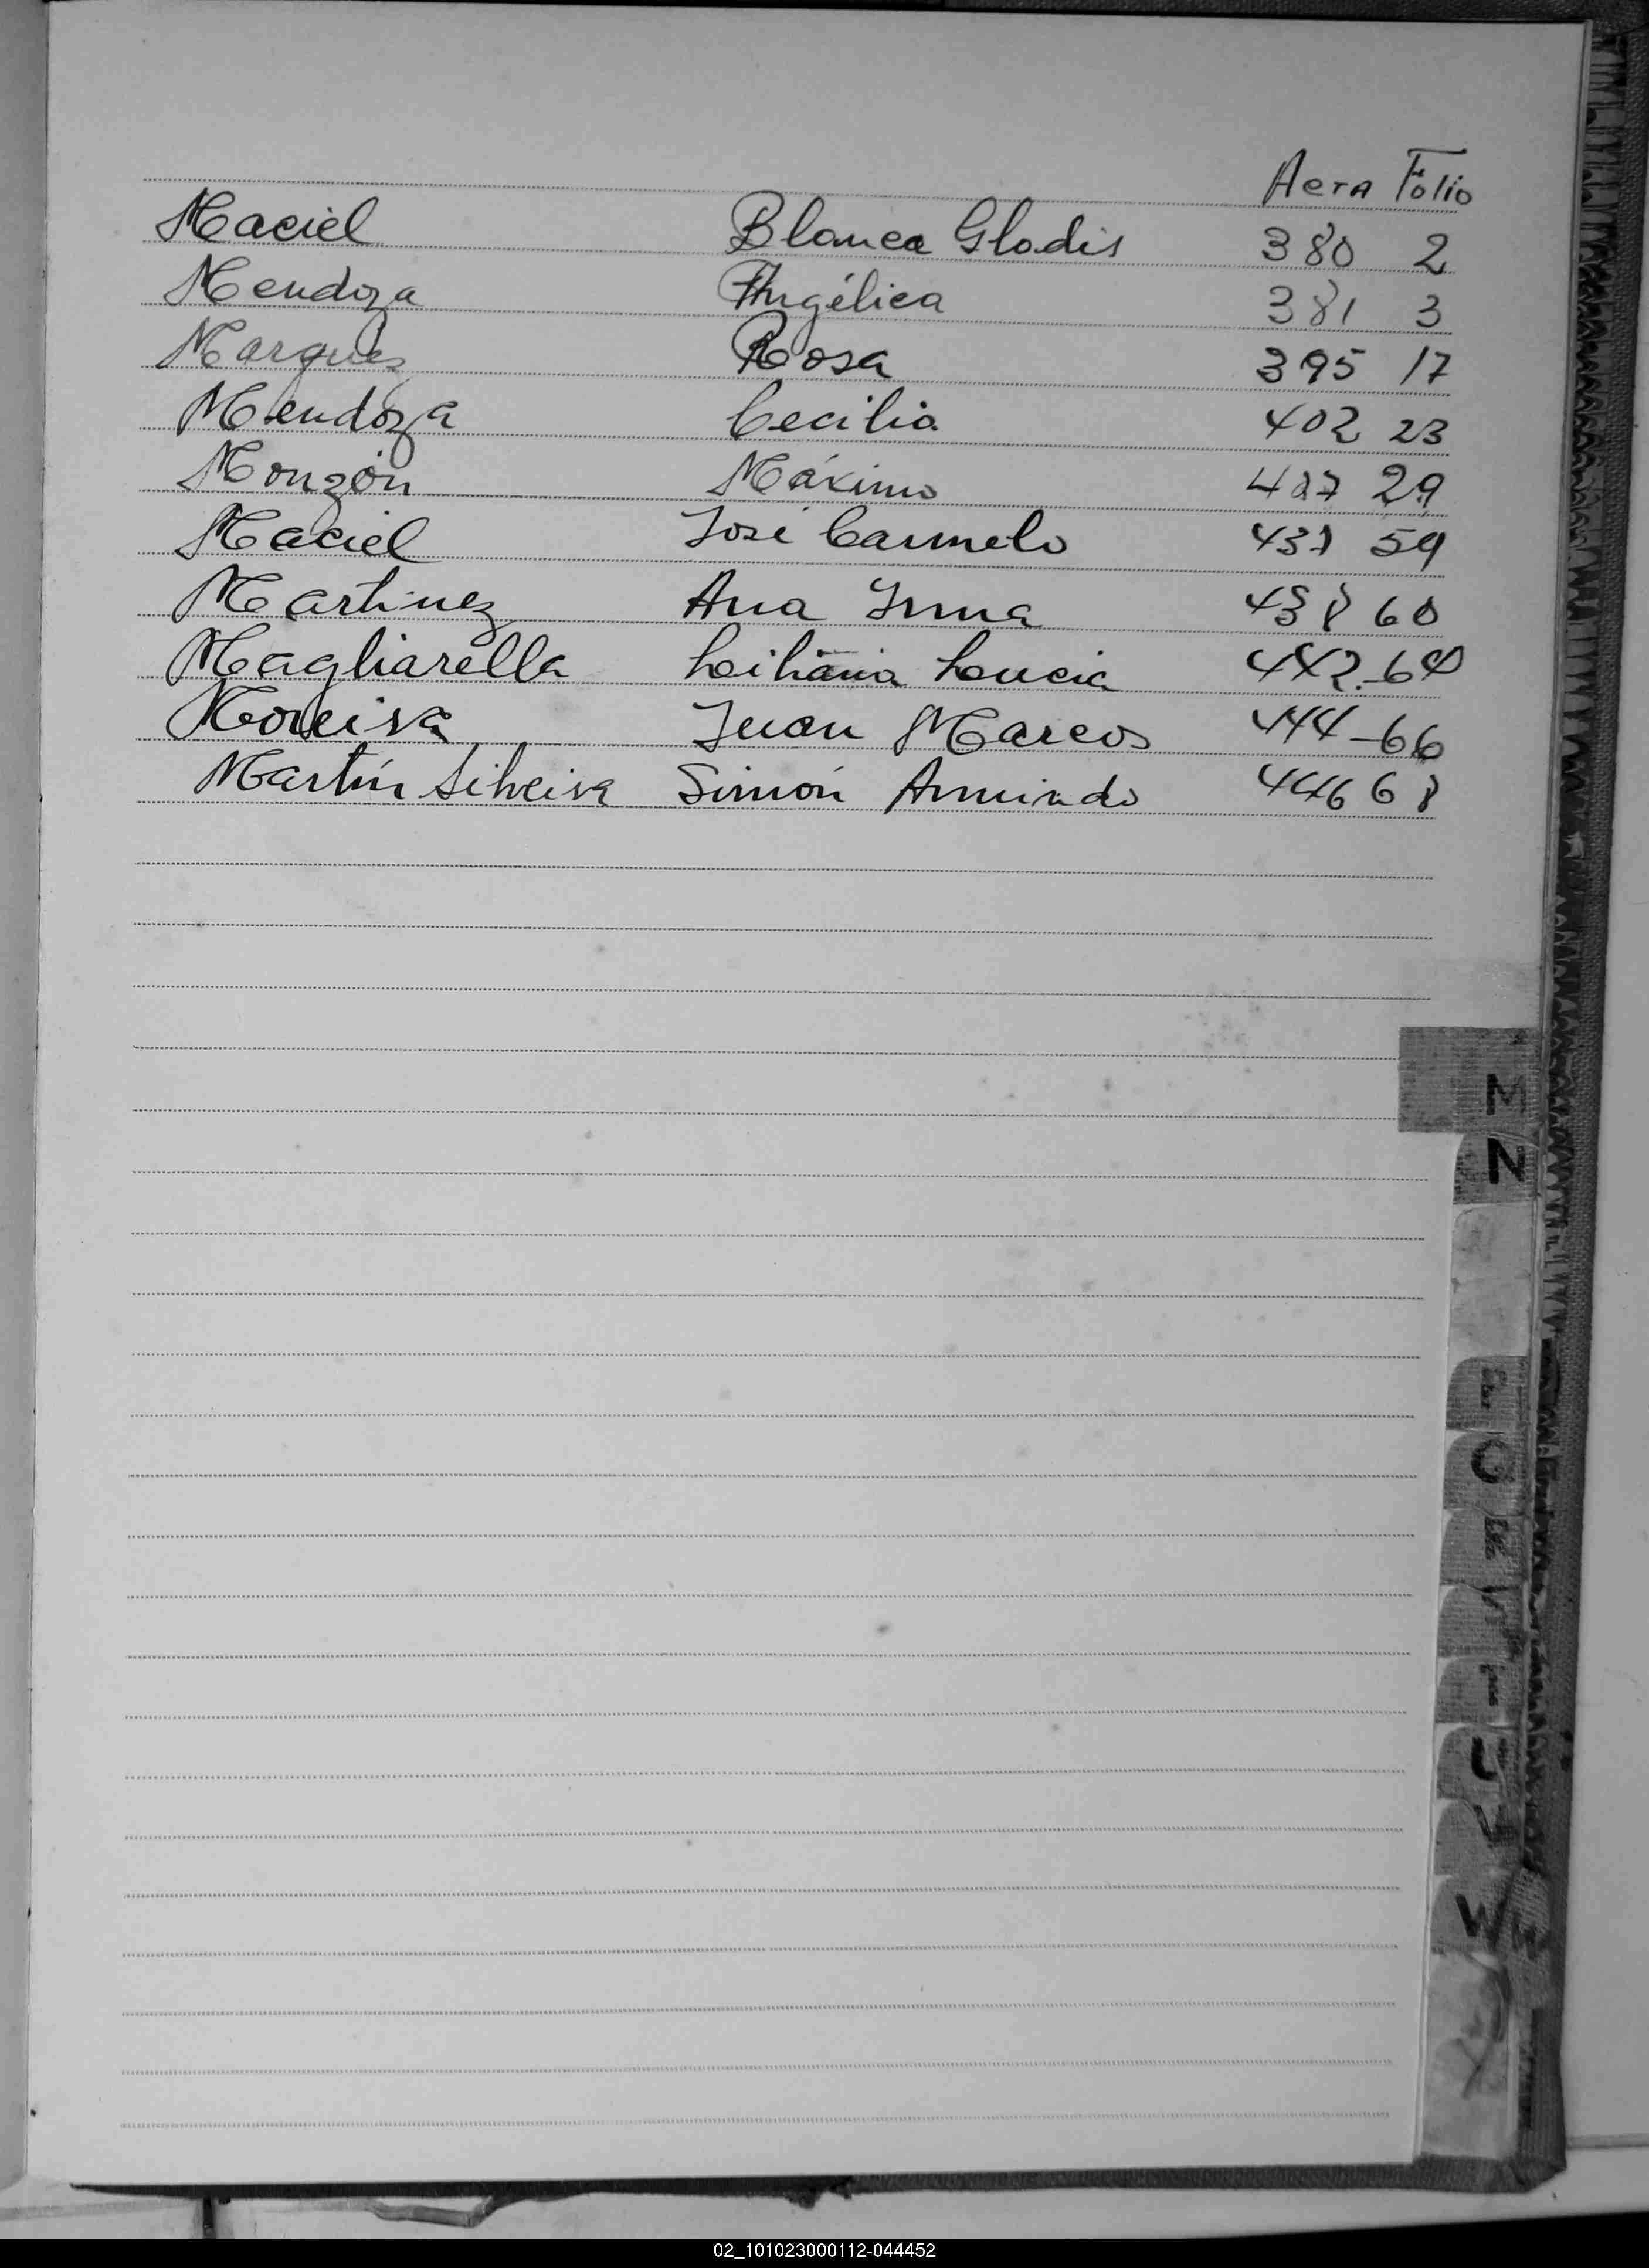 Acta Folio
Maciel Blanca Gladis 380 2
Mendoza Angélica 381 3
Marques Rosa 395 17
Mendoza Cecilia 402 23
Monzón Máximo 407 29
Maciel José Carmelo 437 59
Martinez Ana Irma 438 60
Magliarella Liliana Lucia 442-64
Moreira Juan Marcos 444-66
Martín Silveira Simón Armindo 446 68
M
N
O
T
U
V
W
X
02_101023000112-044452